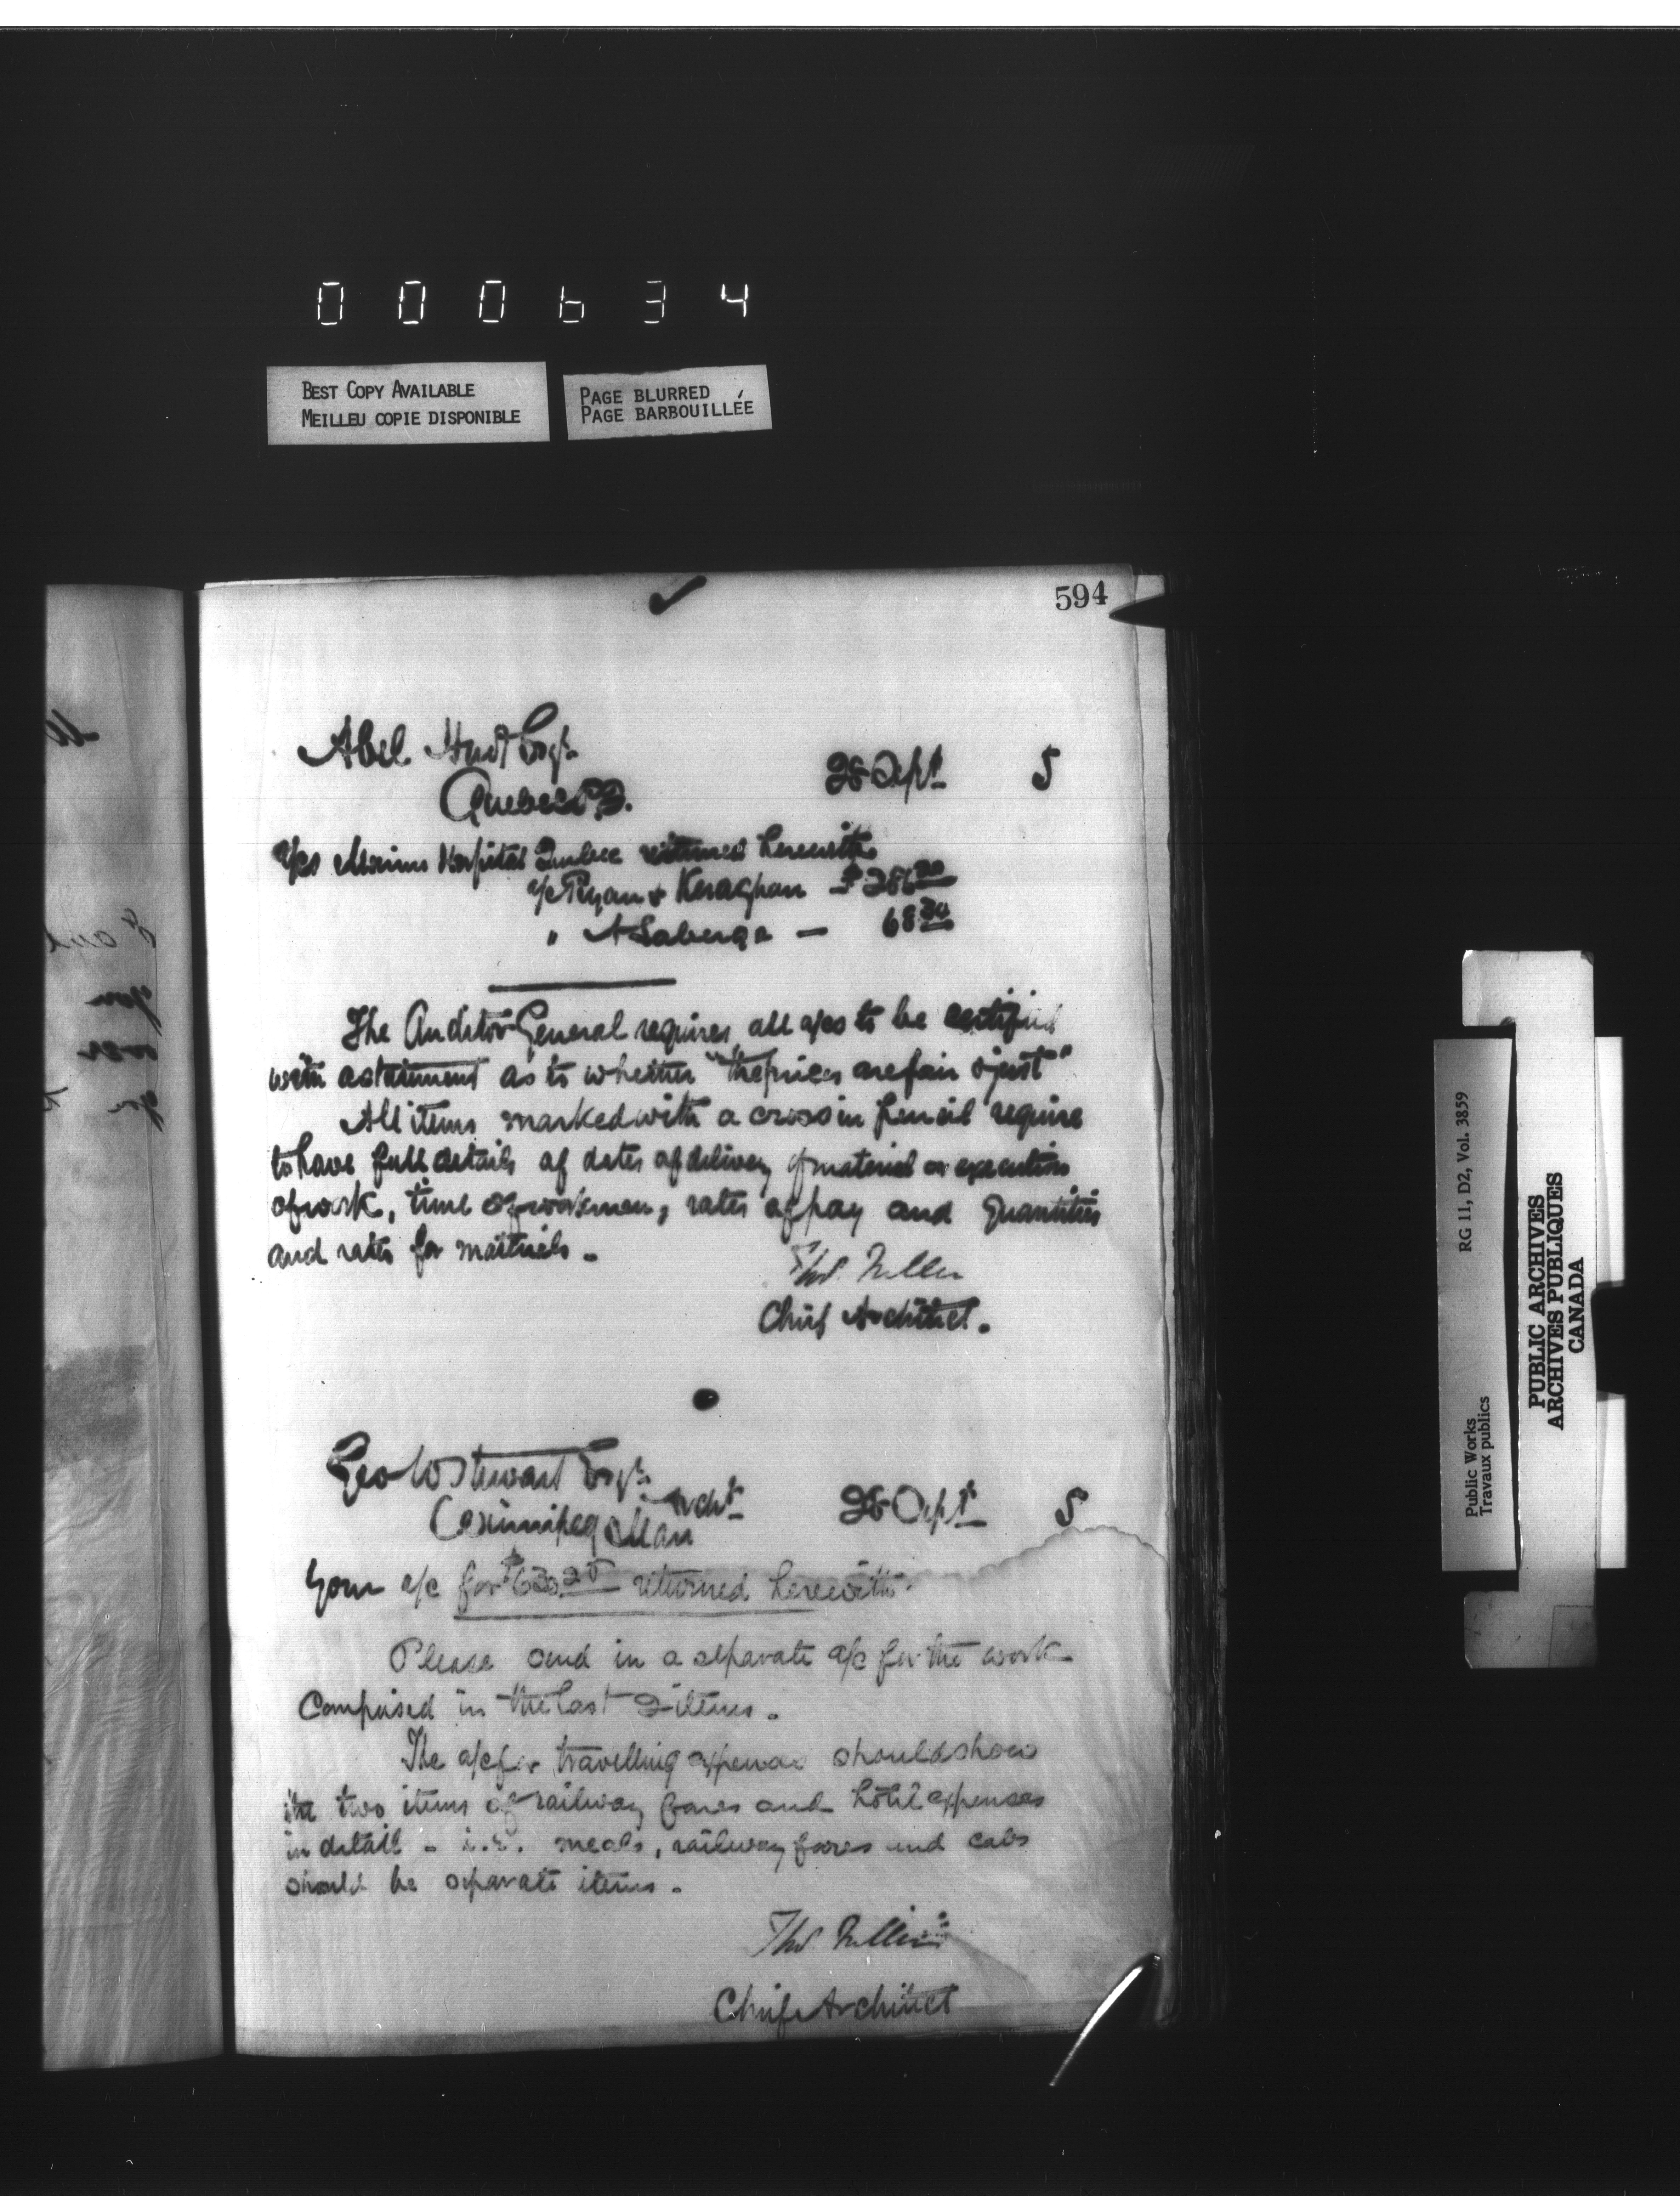 000634
BEST COPY AVAILABLE
MEILLEU COPIE DISPONIBLE
PAGE BLURRED
PAGE BARBOUILLÉE
594
Abel Esqr
Quebec P.Q.
28 Sept 5
a/cs Marine Hospital Quebec returned herewith
a/c Ryan & Keraghan $
" A Laberge — 68
The Auditor General requires all a/cs to be certified
with a statement as to whether "the prices are fair & just"
All items marked with a cross in pencil require
to have full details of dates of delivery of material or execution
of work, time of workmen, rates of pay and quantities
and rates for materials.
Thos. Fuller
Chief Architect.
Geo W Stewart Esqr
Archt
Winnipeg Man
28 Sept 5
Your a/c for returned herewith.
Please send in a separate a/c for the work
Comprised in the last 2 items.
The a/c for travelling expenses should show
the two items of railway fares and hotel expenses
in detail - i.e. meals, railway fares and cabs
should be separate items.
Thos Fuller
Chief Architect
Public Works
Travaux publics
RG 11, D2, Vol. 3859
PUBLIC ARCHIVES
ARCHIVES PUBLIQUES
CANADA